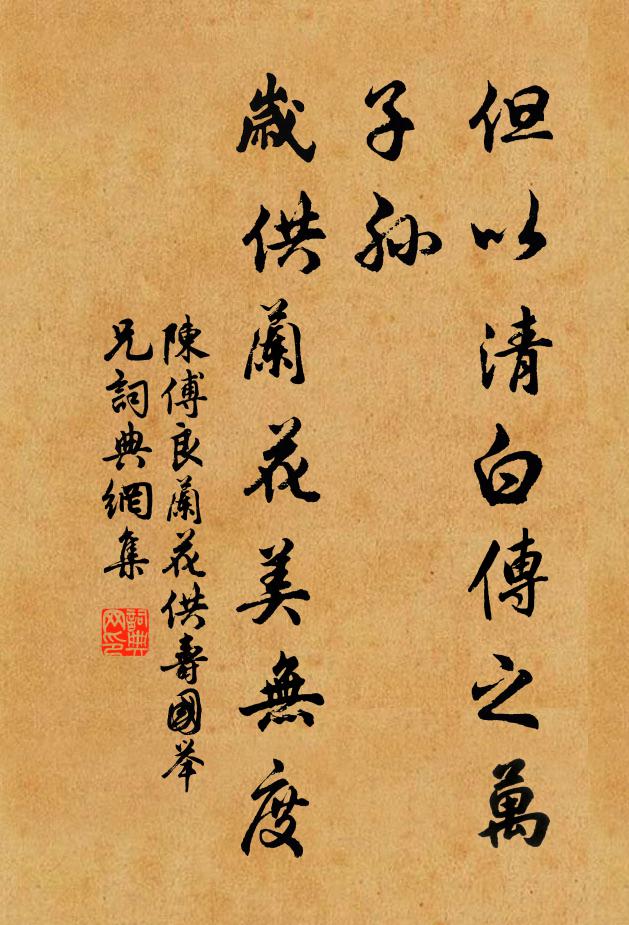 但以清白傳之萬
子孫
歲供蘭花美無度
陳傅良蘭花供壽國举
兄詞典網集
詞典
网印